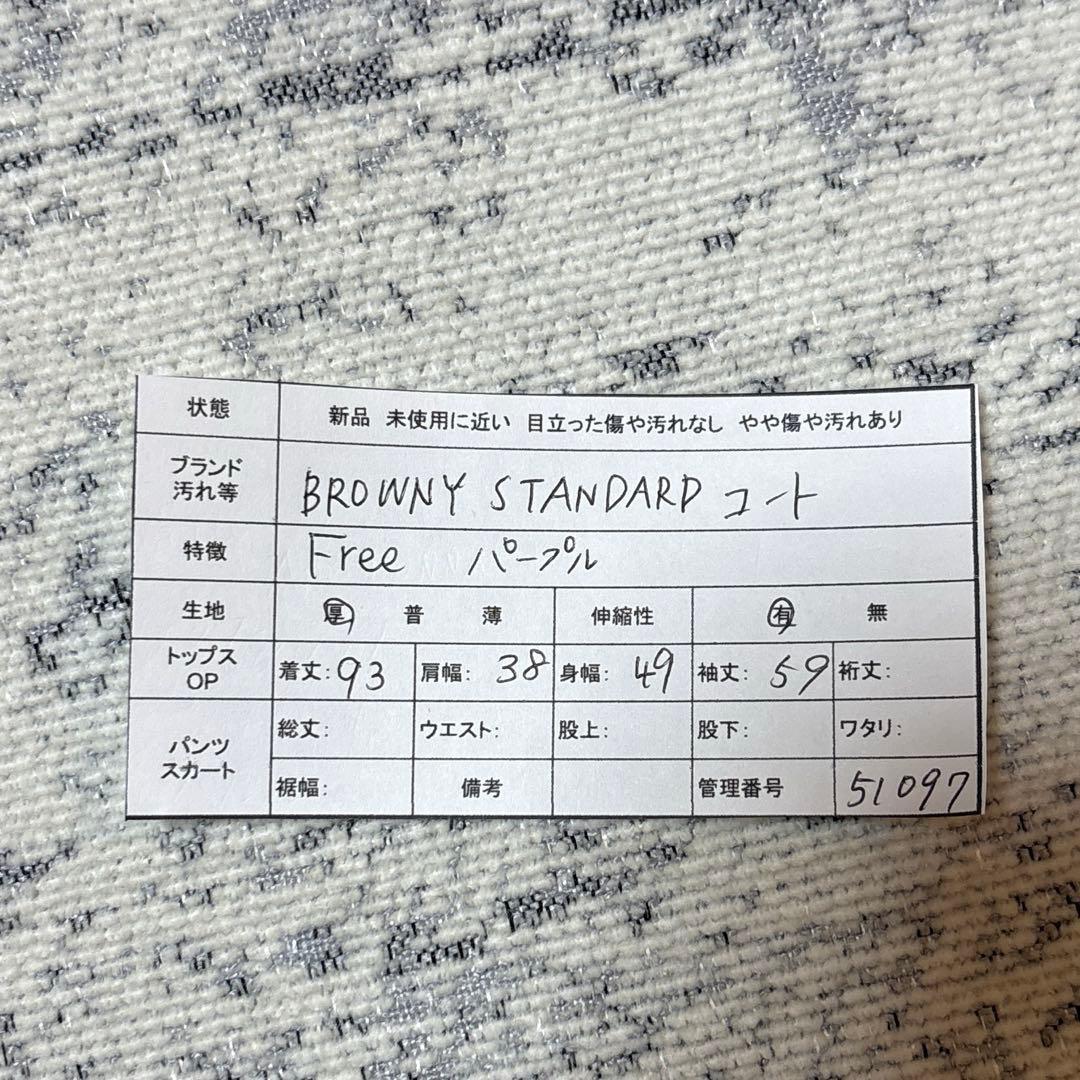 状態 新品 未使用に近い 目立った傷や汚れなし やや傷や汚れあり
ブランド
汚れ等 BROWNY STANDARD コート
特徴 Free パープル
生地 厚 普 薄 伸縮性 有 無
トップス
OP 着丈:93 肩幅:38 身幅:49 袖丈:59 裄丈:
パンツ
スカート 総丈: ウエスト: 股上: 股下: ワタリ:
裾幅: 備考 管理番号 51097